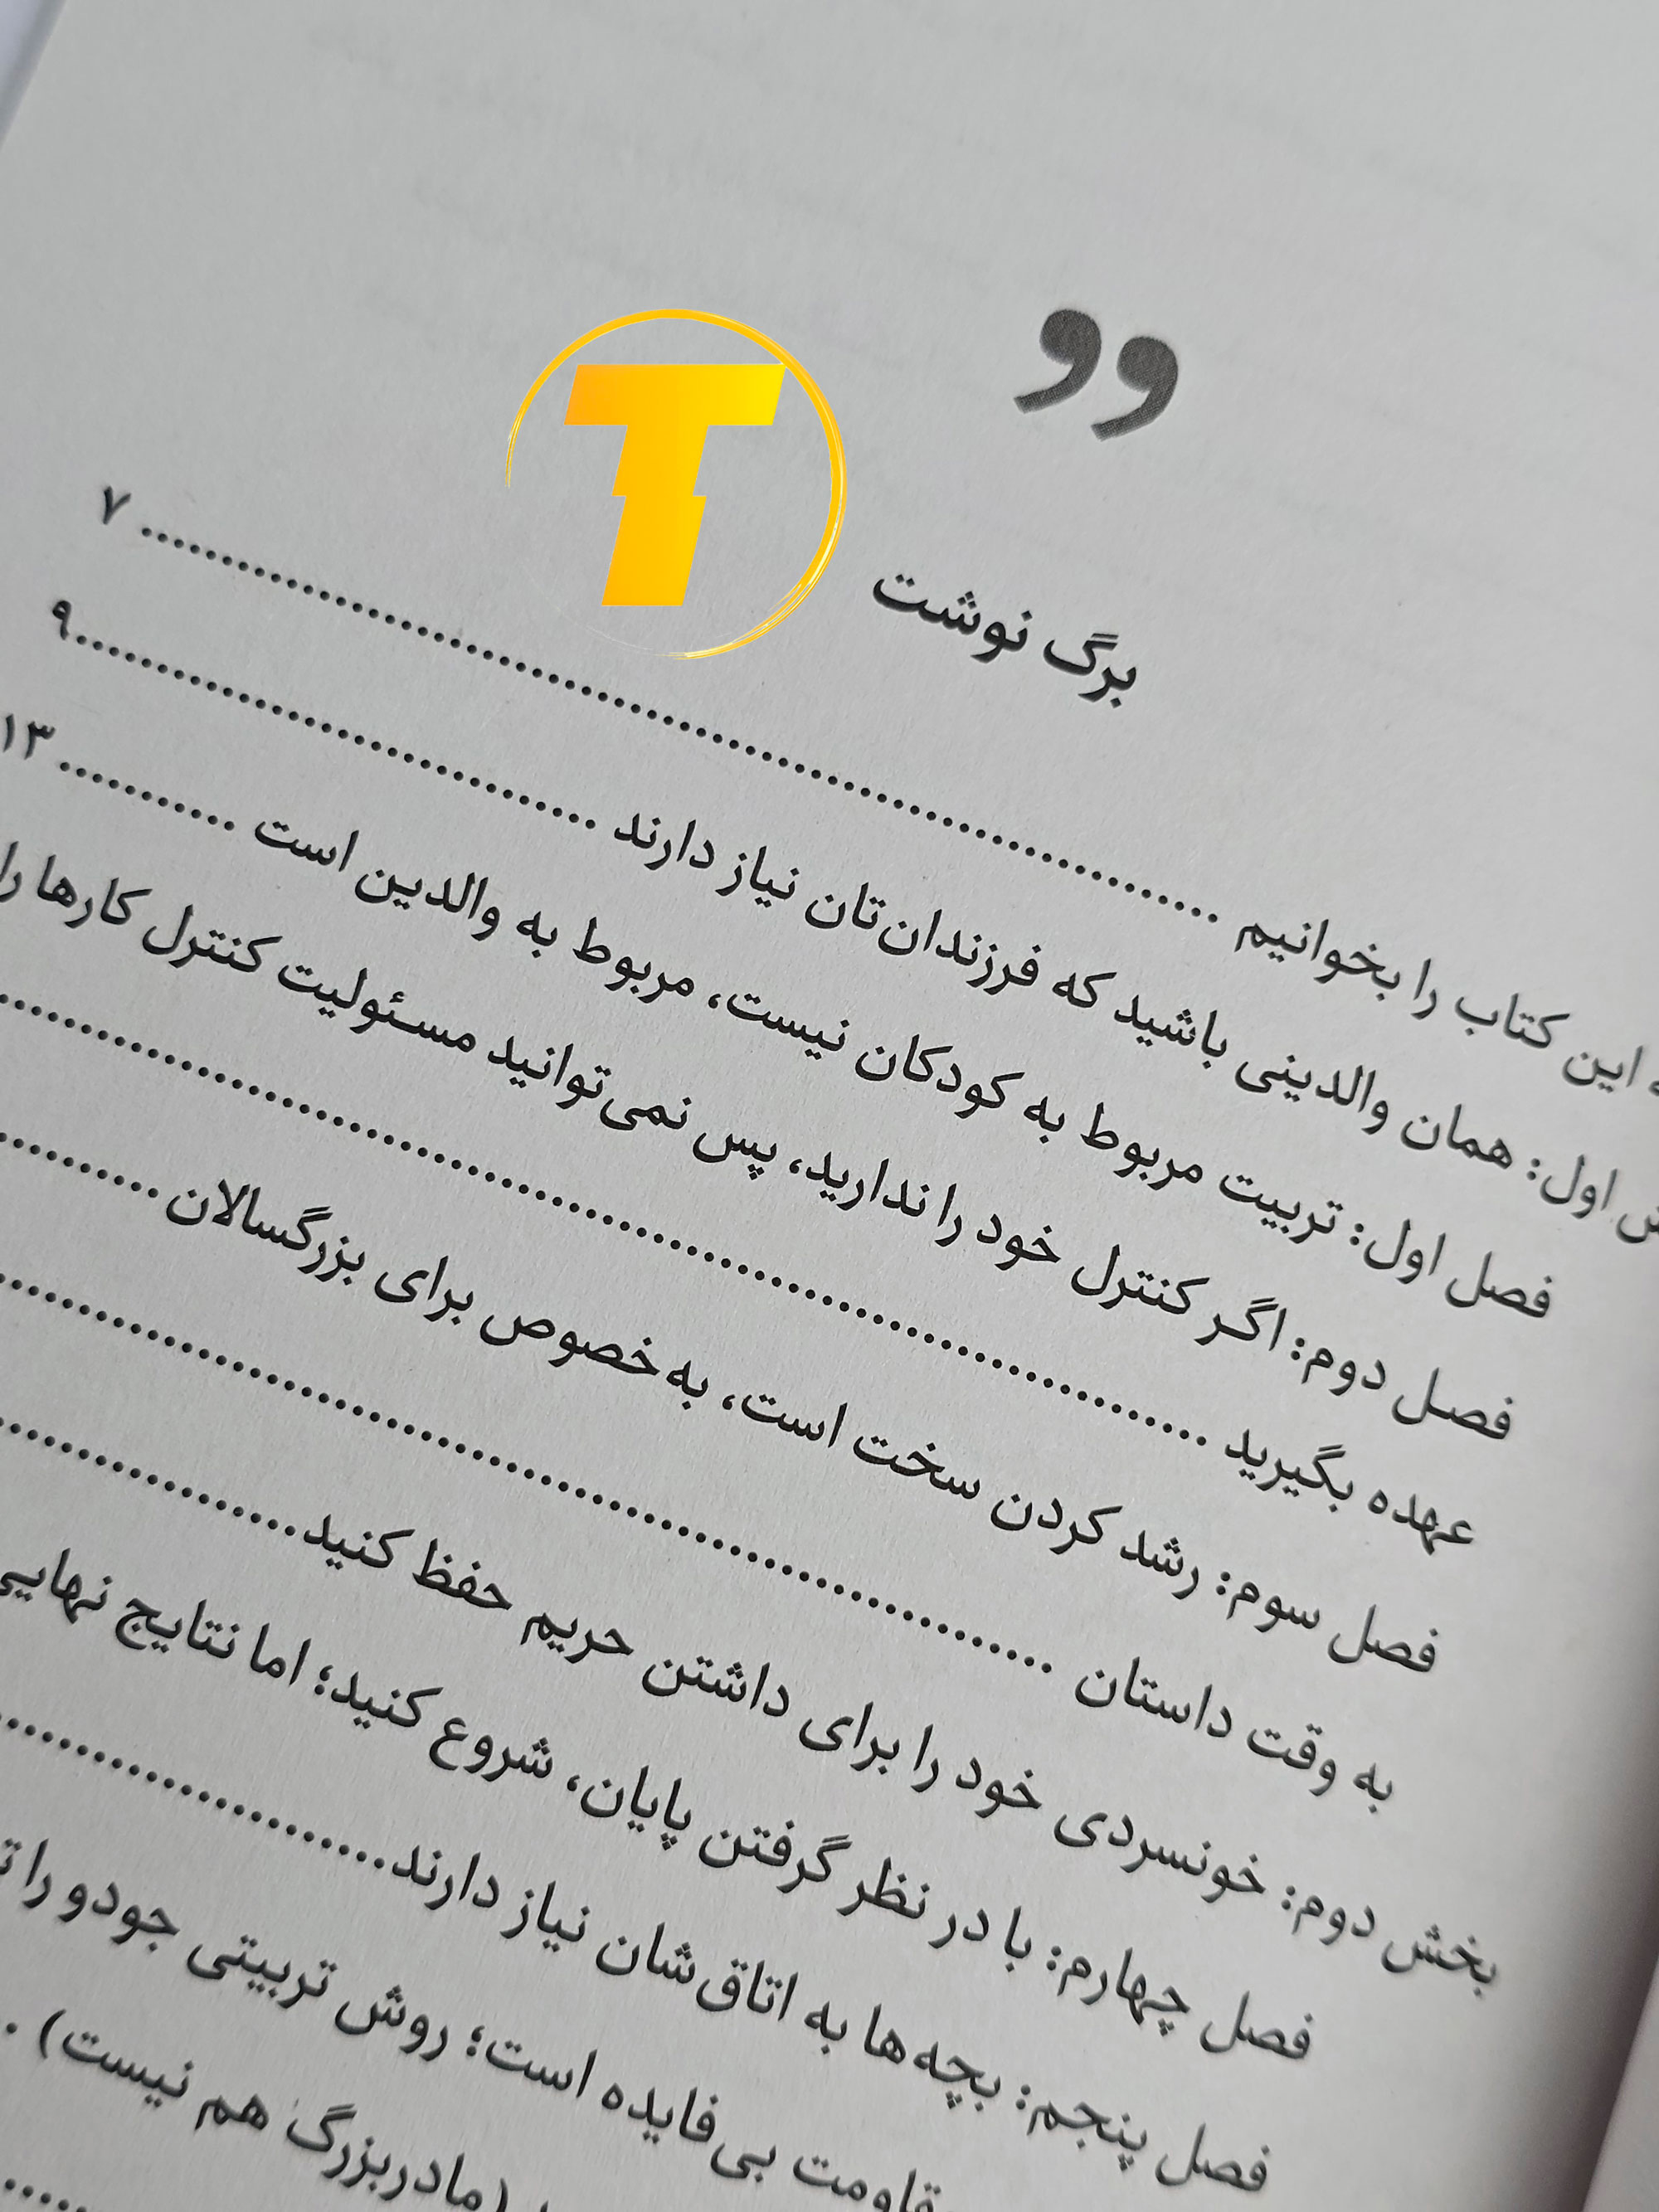 ”
T
برگ نوشت
این کتاب را بخوانیم ........ ۷
اول: همان والدینی باشید که فرزندان‌تان نیاز دارند ........ ۹
فصل اول: تربیت مربوط به کودکان نیست، مربوط به والدین است ........ ۱۳
فصل دوم: اگر کنترل خود را ندارید، پس نمی‌توانید مسئولیت کنترل کارها را
عهده بگیرید ........
فصل سوم: رشد کردن سخت است، به‌خصوص برای بزرگسالان ........
به وقت داستان ........
بخش دوم: خونسردی خود را برای داشتن حریم حفظ کنید ........
فصل چهارم: با در نظر گرفتن پایان، شروع کنید؛ اما نتایج نهایی
........
فصل پنجم: بچه‌ها به اتاق‌شان نیاز دارند ........
بی‌فایده است؛ روش تربیتی جودو را
(مادربزرگ هم نیست) .